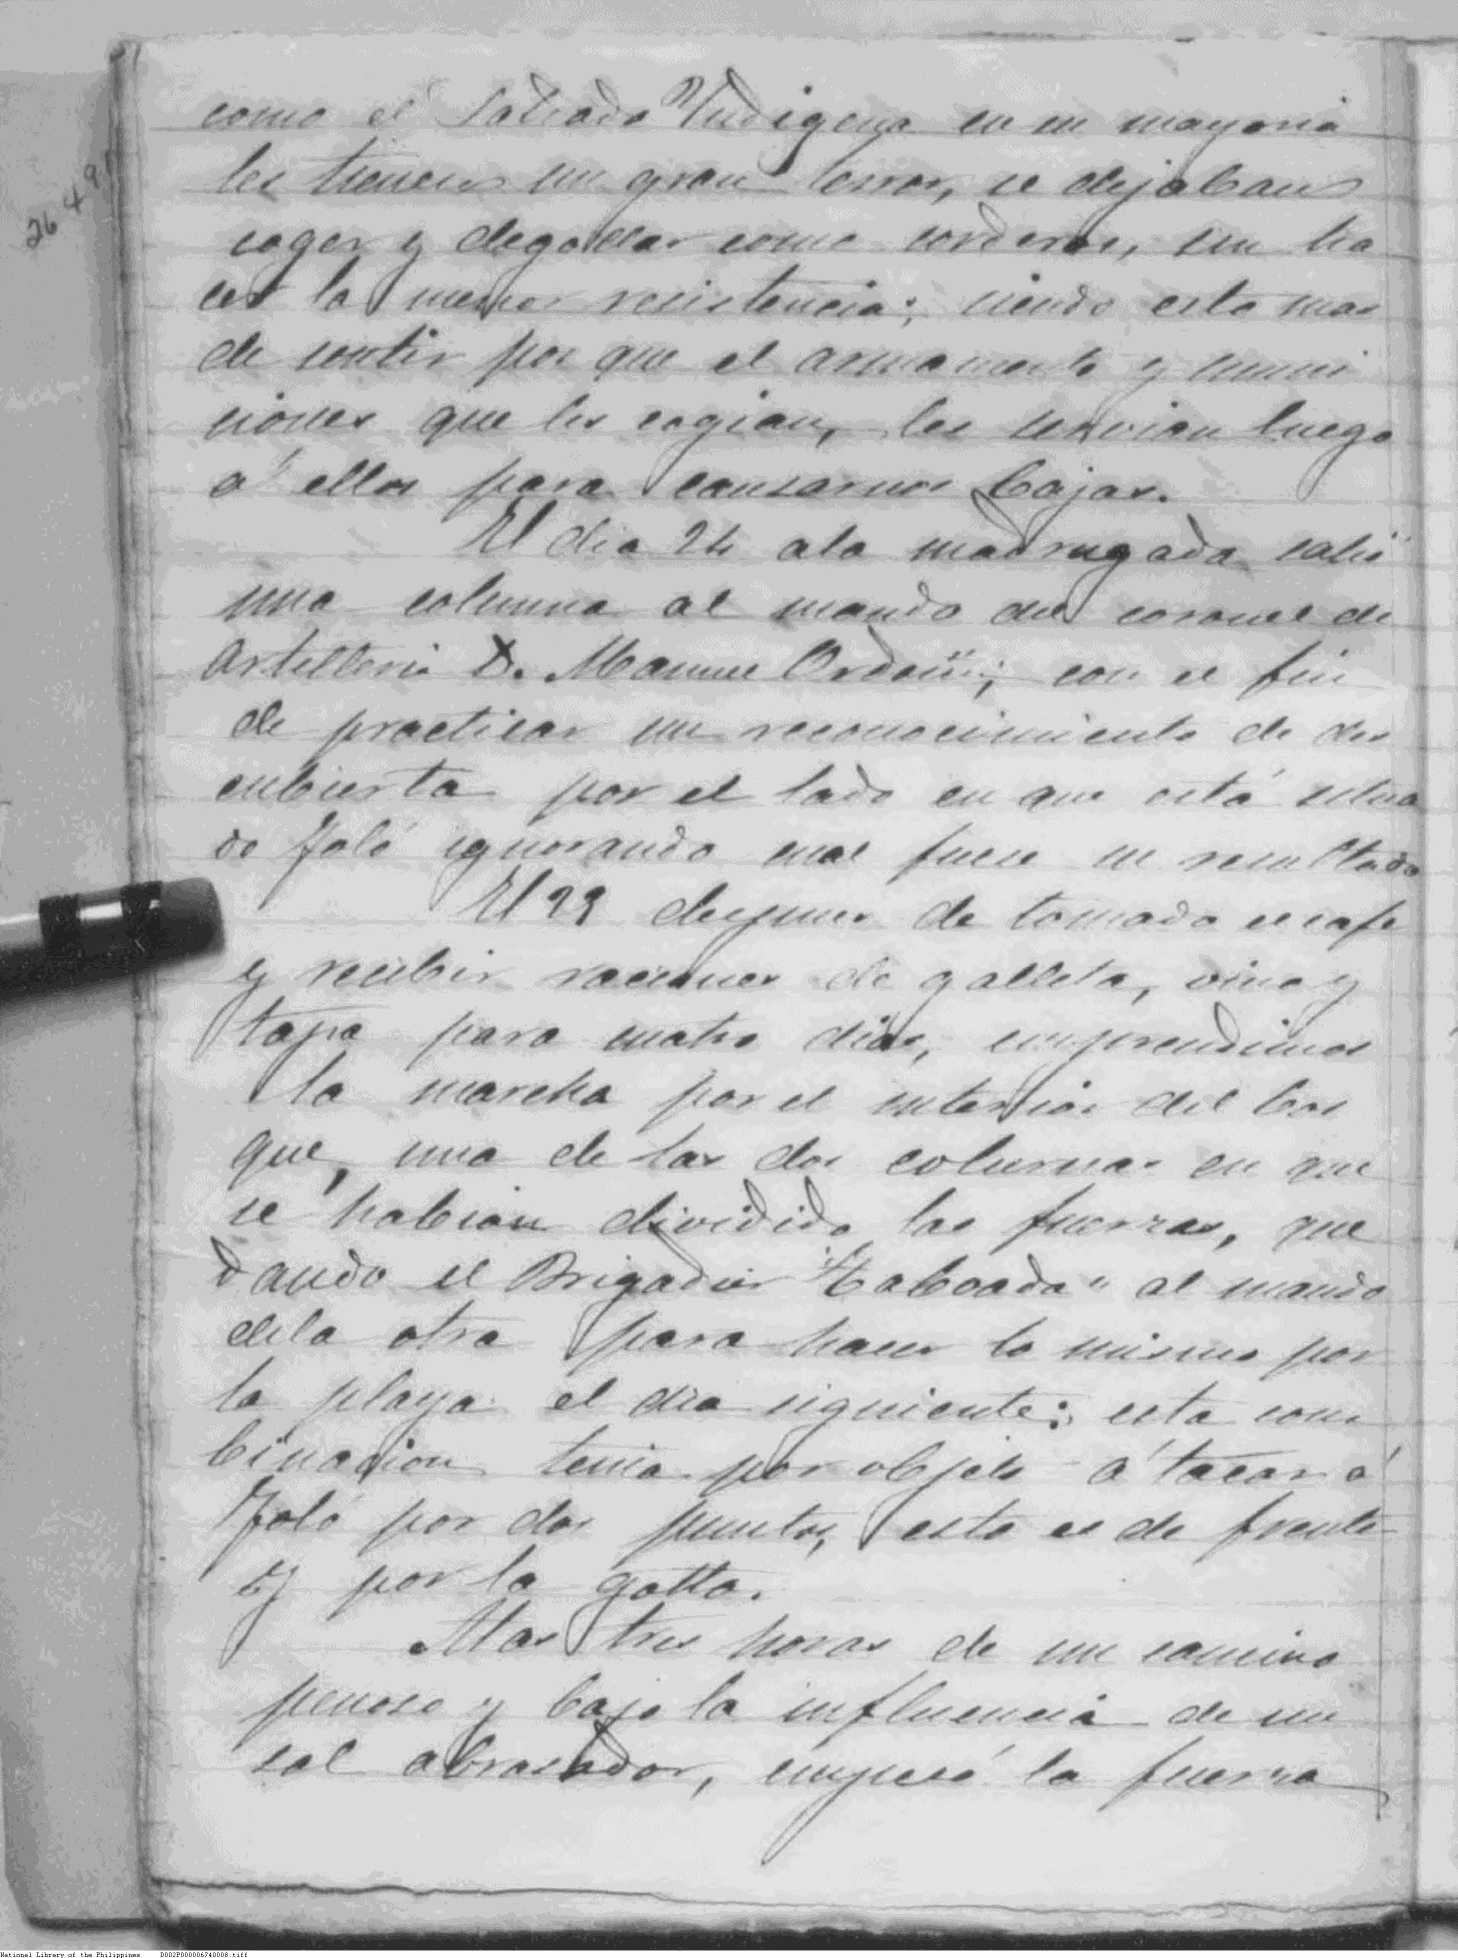 como el Soldado Indigena en su mayoria
les tienen un gran terror, se dejaban
coger y degollar como corderos, sin ha
cer la menor resistencia; siendo esto mas
de sentir por que el armamento y muni
ciones que les cogian, les servian luego
á ellos para causarnos bajas.
El dia 24 ala madrugada salió
una columna al mando del coronel de
Artilleria D. Manuel con el fin
de practicar un reconocimiento de des
cubierta por el lado en que está situa
do Joló ignorando cual fuese su resultado
El despues de tomado el cafe
y recibir raciones de galleta, vino y
tapa para cuatro dias, emprendimos
la marcha por el interior del bos
que, una de las dos columnas en que
se habian dividido las fuerzas, que
dando el Brigadier "Taboada" al mando
dela otra para hacer lo mismo por
la playa el dia siguiente; esta com
binacion tenia por objeto átacar á
Joló por dos puntos, esto es de frente
y por la gotta.
Alas tres horas de un camino
penoso y bajo la influencia de un
sol abrasador, empezó la fuerza
2649
National Library of the Philippines D002P000006740008.tiff